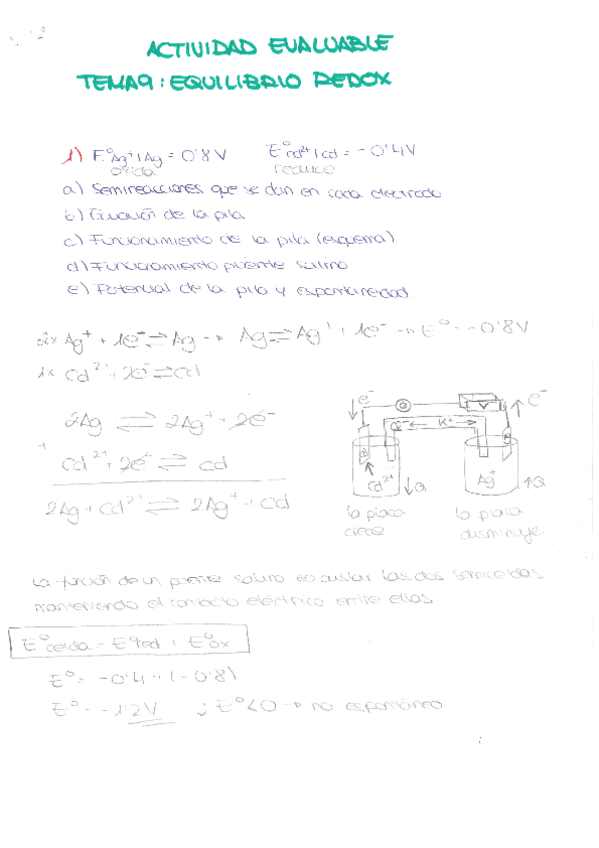 ACTIVIDAD EVALUABLE
TEMA 9: EQUILIBRIO REDOX
1) E°Ag+|Ag = 0'8V E°Cd2+|Cd = -0'4V
oxida reduce
a) Semireacciones que se dan en cada electrodo
b) Ecuación de la pila
c) Funcionamiento de la pila (esquema)
d) Funcionamiento puente salino
e) Potencial de la pila y espontaneidad
2x Ag+ + 1e- ⇌ Ag → Ag ⇌ Ag+ + 1e- → E° = -0'8V
1x Cd2+ + 2e- ⇌ Cd
2Ag ⇌ 2Ag+ + 2e-
+
Cd2+ + 2e- ⇌ Cd
2Ag + Cd2+ ⇌ 2Ag+ + Cd
e- e-
V
K+
Cd2+ Ag+
↓Q ↑Q
la placa crece
la placa disminuye
La función de un puente salino es aislar las dos semiceldas
manteniendo el contacto eléctrico entre ellas
E°celda = E°red + E°ox
E° = -0'4 + (-0'8)
E° = -1'2V ; E°<0 → no espontáneo